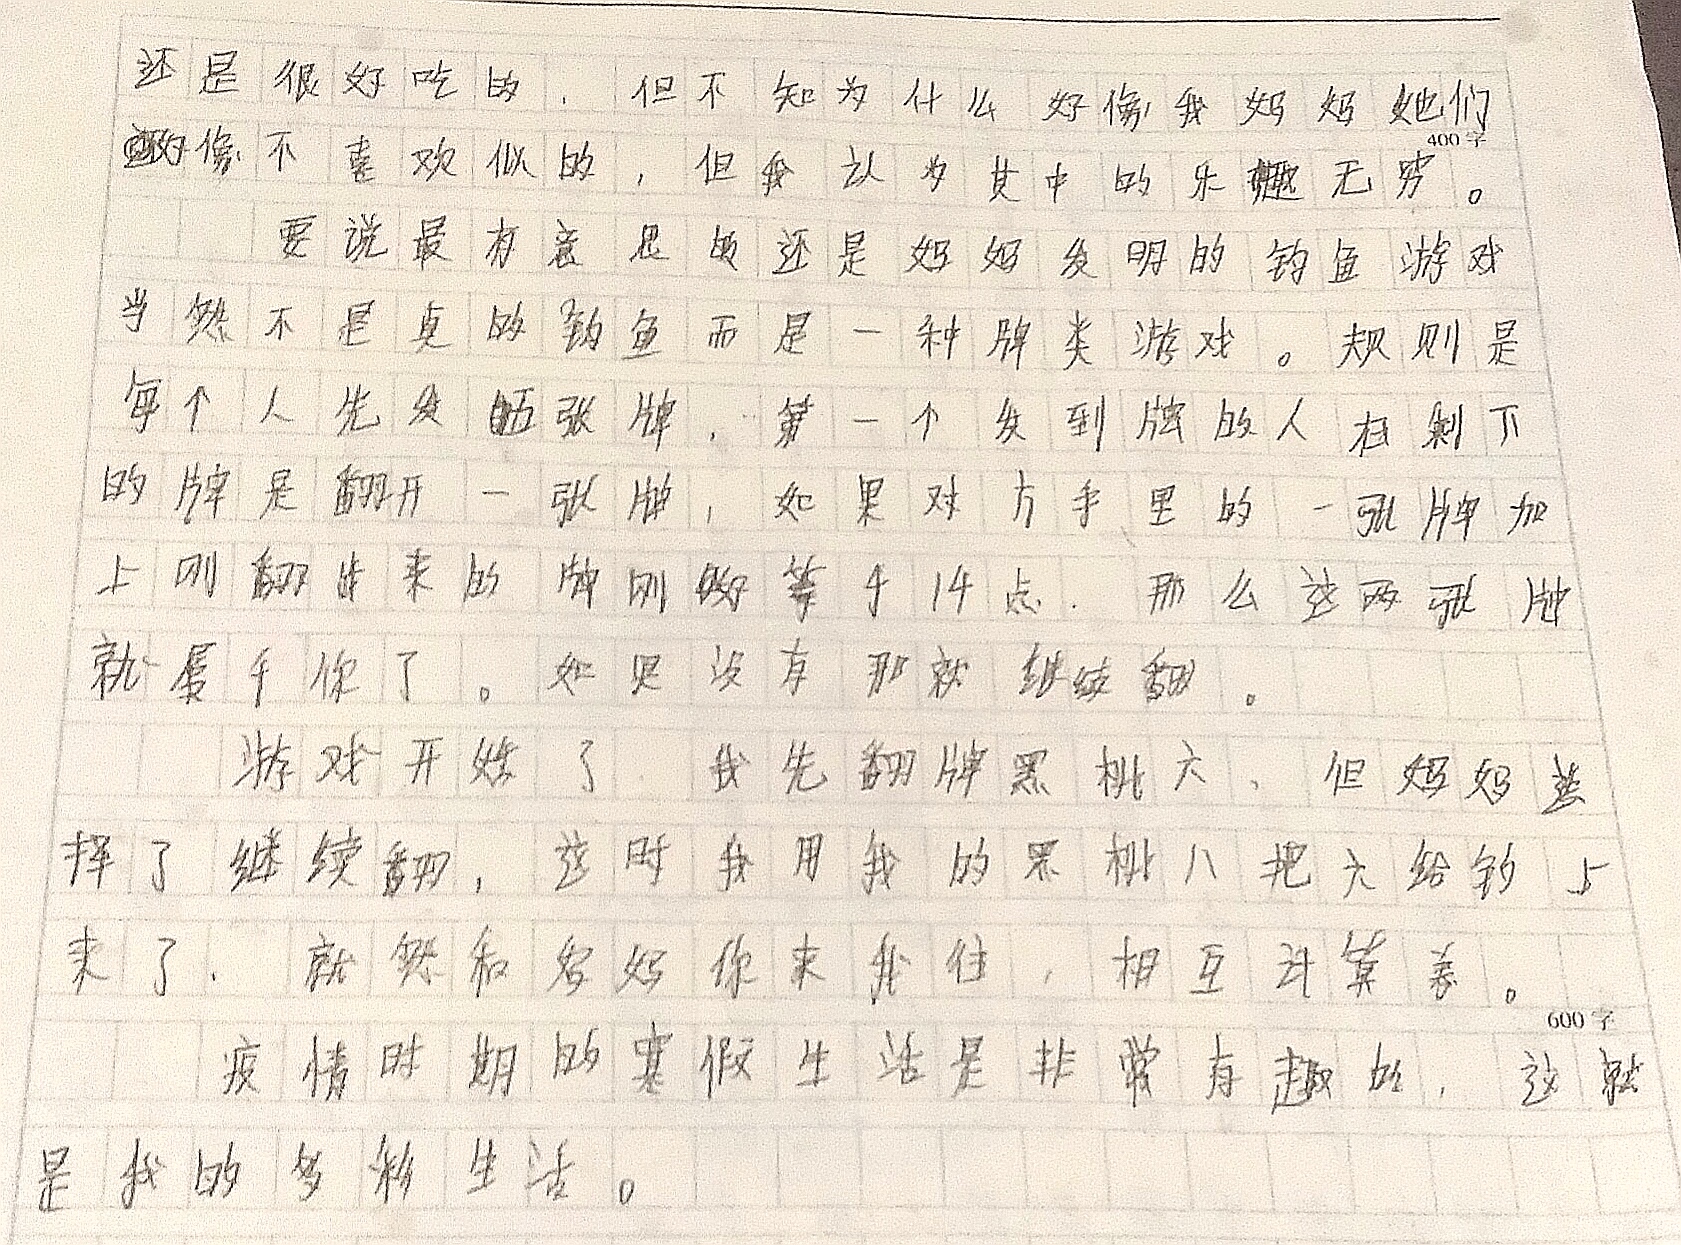 还是很好吃的，但不知为什么好像我妈妈她们
400字
好像不喜欢似的，但我认为其中的乐趣无穷。
要说最有意思的还是妈妈发明的钓鱼游戏
当然不是真的钓鱼而是一种牌类游戏。规则是
每个人先发五张牌，第一个发到牌的人在剩下
的牌是翻开一张牌，如果对方手里的一张牌加
上刚翻出来的牌刚好等于14点．那么这两张牌
就属于你了。如果没有那就继续翻。
游戏开始了 我先翻牌黑桃六、但妈妈选
择了继续翻，这时我用我的黑桃八把六给钓上
来了．就然和爸妈你来我往，相互计算着。
600字
疫情时期的寒假生活是非常有趣的，这就
是我的多彩生活。